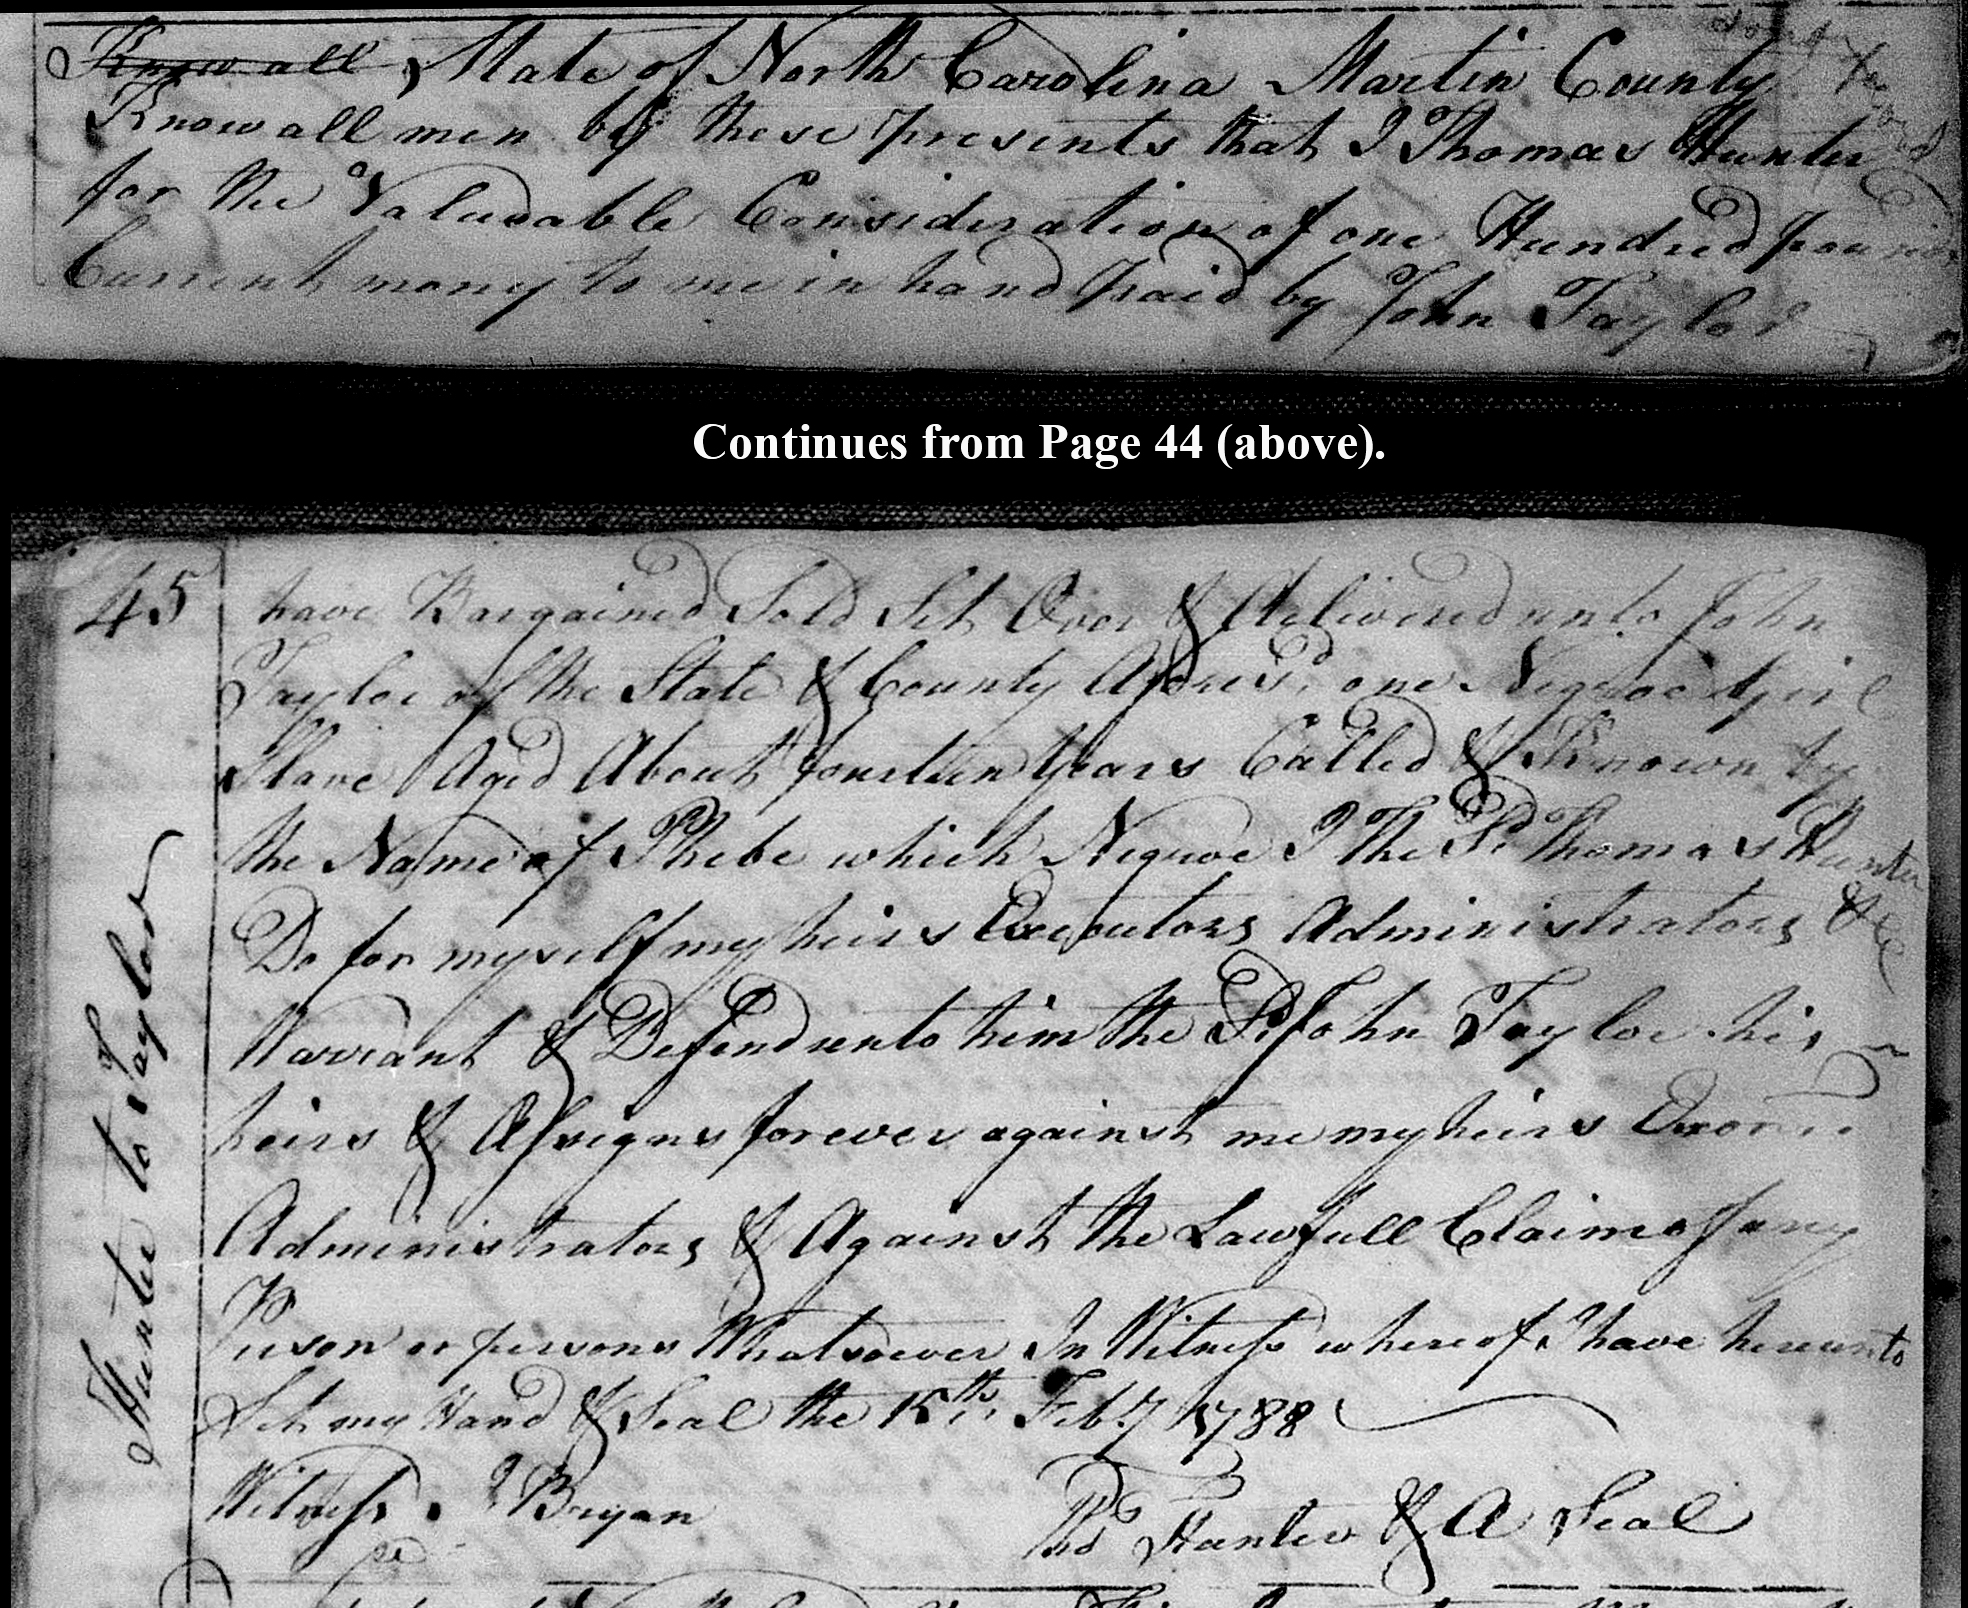 Know all State of North Carolina Martin County
Know all men by these presents that I Thomas Hunter
for the Valuable Consideration of one Hundred pounds
Current mony to me in hand paid by John Taylor
Continues from Page 44 (above).
45
have Bargained Sold Set Over & delivered unto John
Taylor of the State & County Afores'd one Negroe Girl
Slave Aged About fourteen Years Called & Known by
the Name of Phebe which Negroe I the Sd Thomas Hunter
Do for myself my heirs Executors Administrators &c
Warrant & Defend unto him the Sd John Taylor his
heirs & Assigns forever against me my heirs
Administrators & Against the Lawfull Claim of any
Person or persons Whatsoever In Witness whereof I have hereunto
Set my Hand & Seal the 15th Feby 1788
Witness J Bryan
Thos Hunter & A Seal
Hunter to Taylor